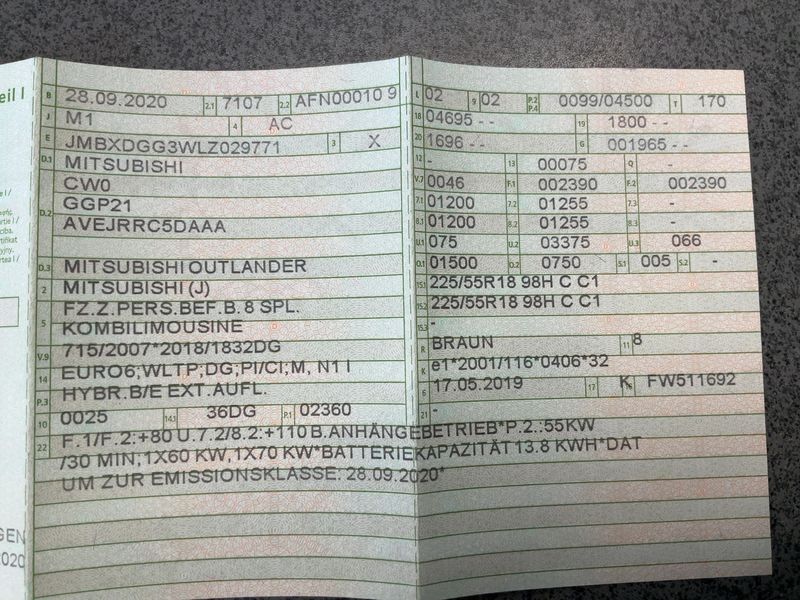 eil I
B 28.09.2020 2.1 7107 2.2 AFN00010 9
J M1 4 AC
E JMBXDGG3WLZ029771 3 X
D.1 MITSUBISHI
CW0
D.2 GGP21
AVEJRRC5DAAA
D.3 MITSUBISHI OUTLANDER
2 MITSUBISHI (J)
5 FZ.Z.PERS.BEF.B. 8 SPL.
KOMBILIMOUSINE
V.9 715/2007*2018/1832DG
14 EURO6;WLTP;DG;PI/CI;M, N1 I
P.3 HYBR.B/E EXT.AUFL.
10 0025 14.1 36DG P.1 02360
L 02 9 02 P.2 P.4 0099/04500 T 170
18 04695 - - 19 1800 - -
20 1696 - - G 001965 - -
12 - 13 00075 Q -
V.7 0046 F.1 002390 F.2 002390
7.1 01200 7.2 01255 7.3 -
8.1 01200 8.2 01255 8.3 -
U.1 075 U.2 03375 U.3 066
O.1 01500 O.2 0750 S.1 005 S.2 -
15.1 225/55R18 98H C C1
15.2 225/55R18 98H C C1
15.3 -
R BRAUN 11 8
K e1*2001/116*0406*32
6 17.05.2019 17 K 16 FW511692
21 -
22 F.1/F.2:+80 U.7.2/8.2:+110 B.ANHÄNGEBETRIEB*P.2.:55KW
/30 MIN;1X60 KW,1X70 KW*BATTERIEKAPAZITÄT 13.8 KWH*DAT
UM ZUR EMISSIONSKLASSE: 28.09.2020*
GEN
2020